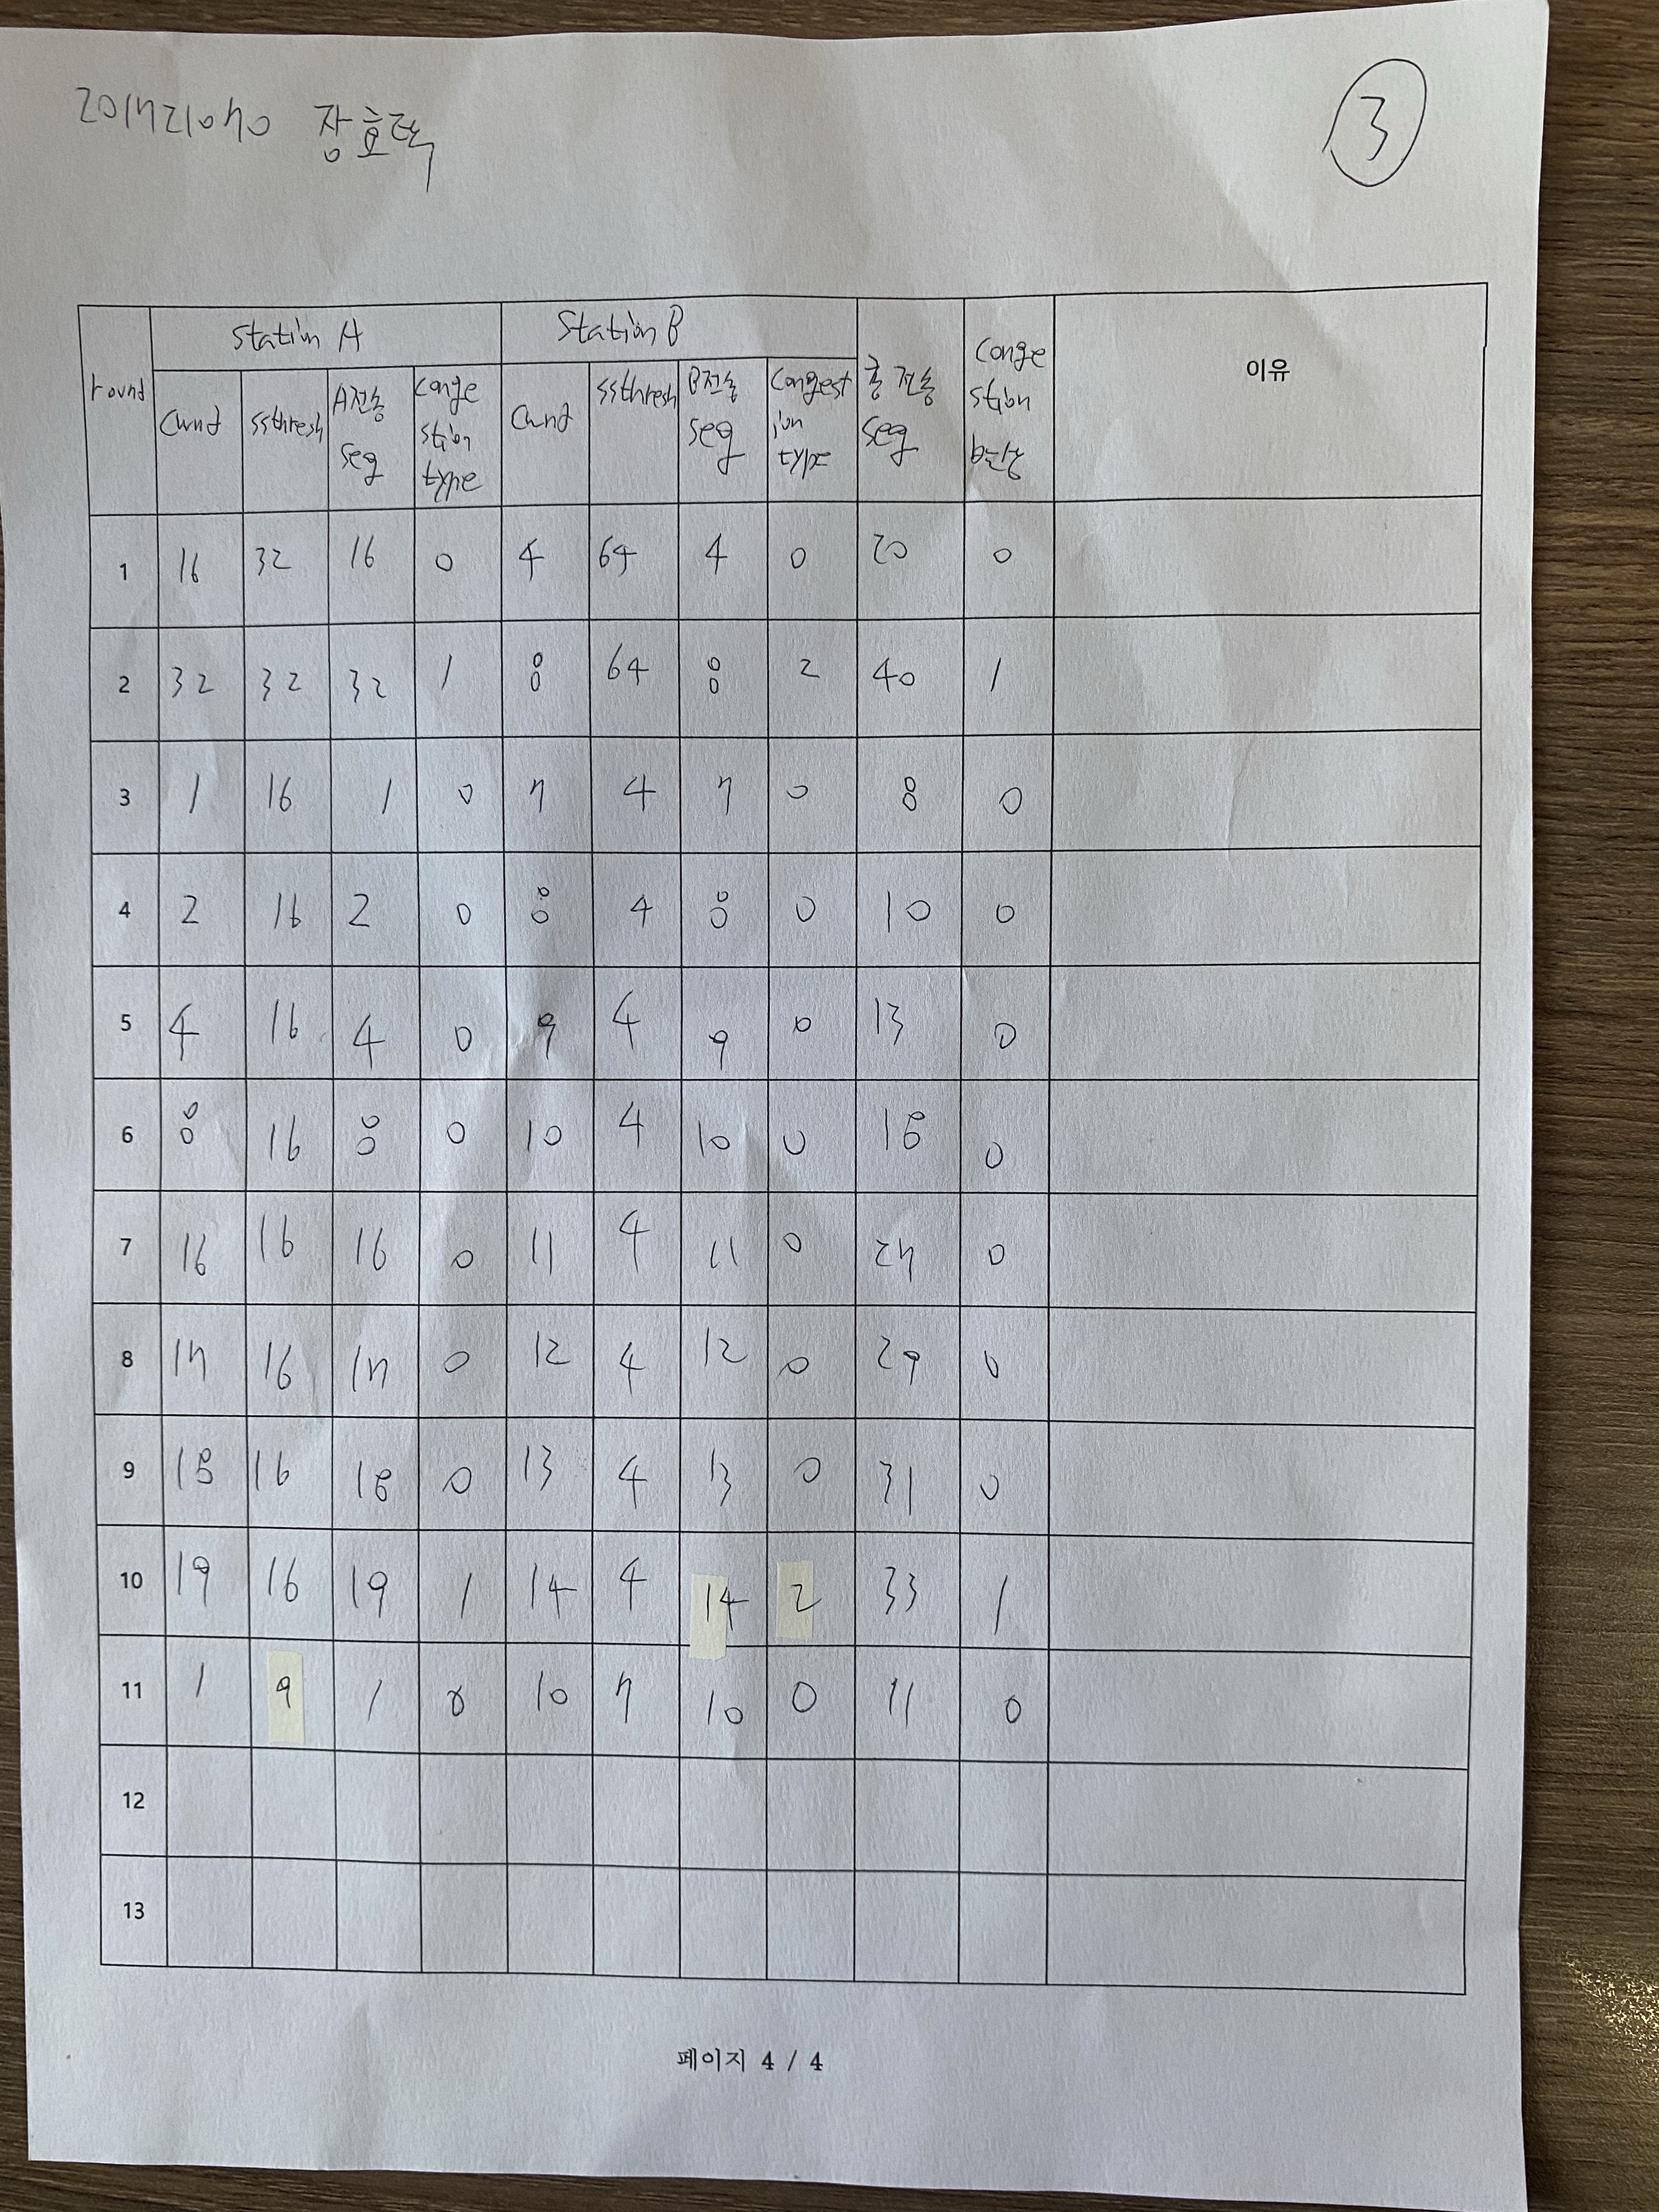 201721070 장효택
3
round Station A Station B 총 전송 seg Congestion 발생 이유
cwnd ssthresh A전송 seg congestion type cwnd ssthresh B전송 seg Congestion type
1 16 32 16 0 4 64 4 0 20 0
2 32 32 32 1 8 64 8 2 40 1
3 1 16 1 0 7 4 7 0 8 0
4 2 16 2 0 8 4 8 0 10 0
5 4 16 4 0 9 4 9 0 13 0
6 8 16 8 0 10 4 10 0 18 0
7 16 16 16 0 11 4 11 0 27 0
8 17 16 17 0 12 4 12 0 29 0
9 18 16 18 0 13 4 13 0 31 0
10 19 16 19 1 14 4 14 2 33 1
11 1 9 1 0 10 7 10 0 11 0
12
13
페이지 4 / 4